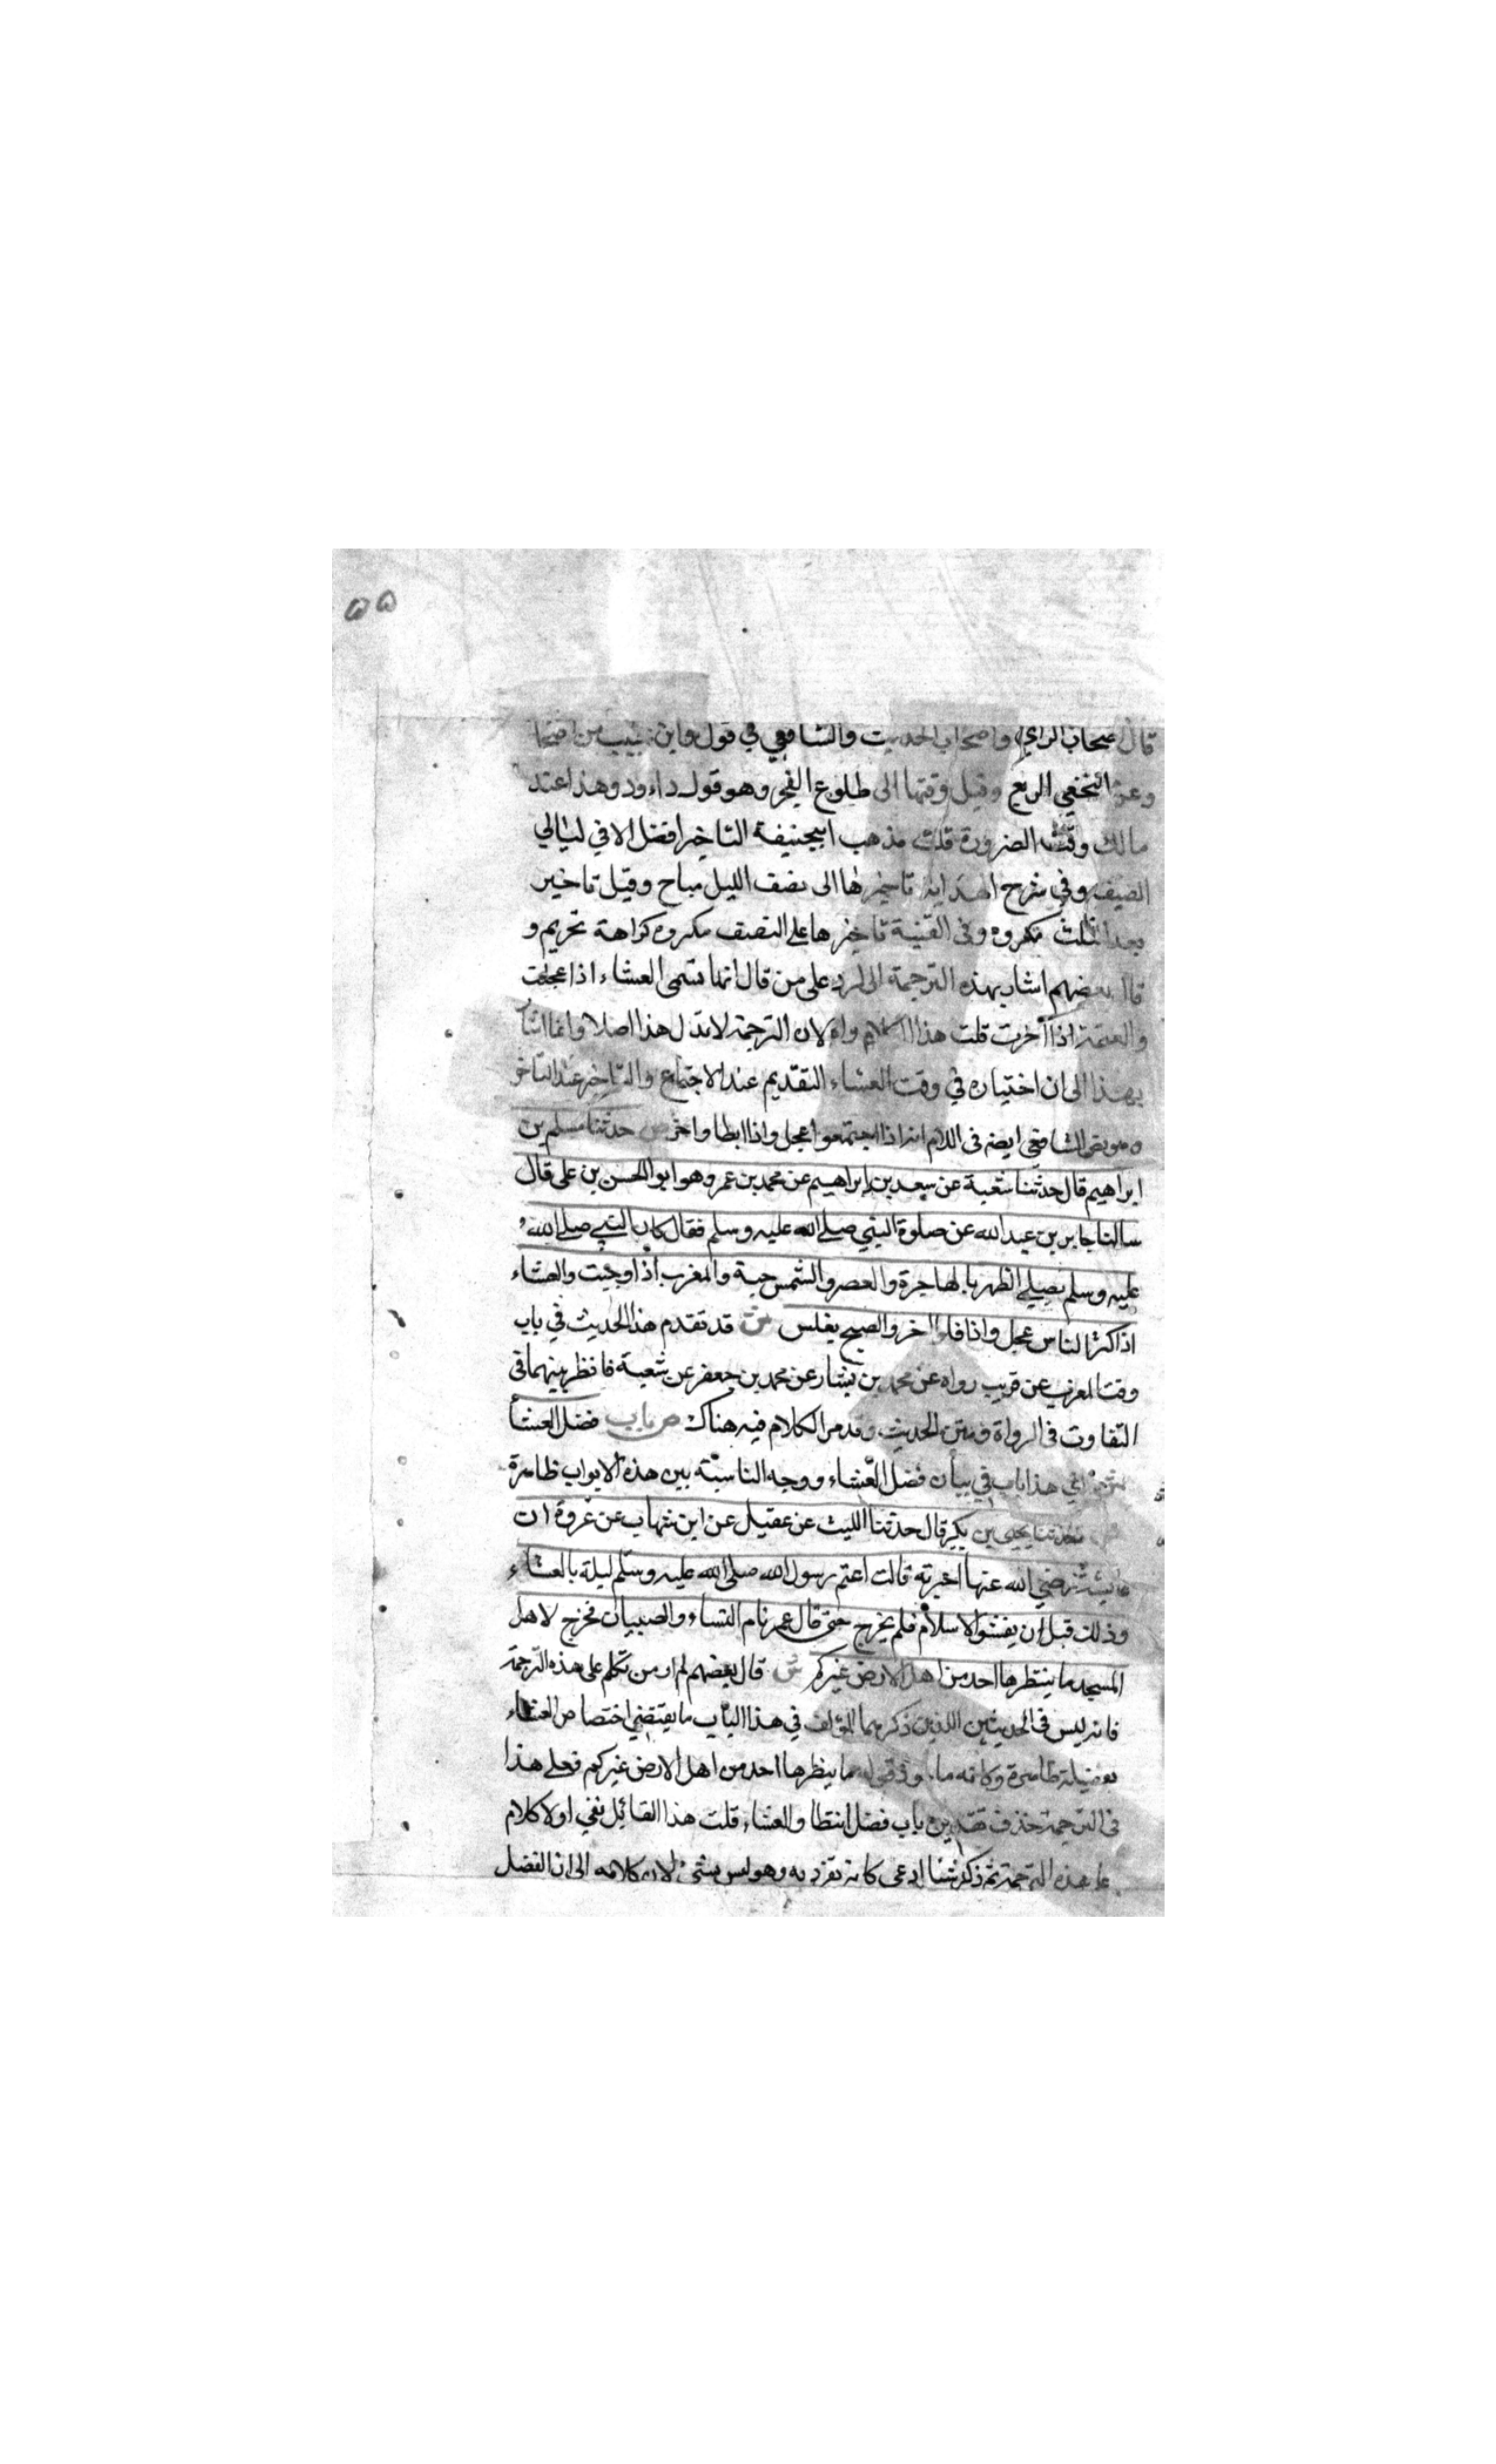 ۵۵
قال اصحاب الراي واصحاب الحديث والشافعي في قول وابن حبيب من اصحابنا
وعن النخعي الربع وقيل وقتها الى طلوع الفجر وهو قول داود وهذا عند
مالك وقت الضرورة قلت مذهب ابيحنيفة التاخير افضل الا في ليالي
الصيف وفي شرح الهداية تاخيرها الى نصف الليل مباح وقيل تاخير
بعد الثلث مكروه وفى القنية تاخيرها على النصف مكروه كراهة تحريم و
قال بعضهم اشار بهذه الترجمة الى الرد على من قال انها تسمى العشاء اذا عجلت
والعتمة اذا أخرت قلت هذا الكلام واه لان الترجمة لا تدل هذا اصلا وانما اشا
بهذا الى ان اختياره في وقت العشاء التقديم عند الاجتماع والتاخير عند التاخر
وهو نص الشافعي ايضه فى الام انه اذا اجتمعوا عجل واذا ابطاوا اخر ص حدثنا مسلم بن
ابراهيم قال حدثنا شعبة عن سعد بن ابراهيم عن محمد بن عمرو هو ابو الحسن بن على قال
سالنا جابر بن عبد الله عن صلوة النبي صلى الله عليه وسلم فقال كان النبي صلى الله
عليه وسلم يصلي الظهر بالهاجرة والعصر والشمس حية والمغرب اذا وجبت والعشاء
اذا كثر الناس عجل واذا قلوا اخر والصبح بغلس ش قد تقدم هذا الحديث في باب
وقت المغرب عن قريب رواه عن محمد بن بشار عن محمد بن جعفر عن شعبة فانظر بينهما فى
التفاوت فى الرواة ومتن الحديث وقد مر الكلام فيه هناك ص باب فضل العشأ
ش اي هذا باب في بيان فضل العشاء ووجه المناسبة بين هذه الابواب ظاهرة
ص حدثنا يحيى بن بكير قال حدثنا الليث عن عقيل عن ابن شهاب عن عروة ان
عايشة رضي الله عنها اخبرته قالت اعتم رسول الله صلى الله عليه وسلم ليلة بالعشاء
وذلك قبل ان يفشوا الاسلام فلم يخرج حتى قال عمر نام النساء والصبيان فخرج لاهل
المسجد ما ينتظرها احد من اهل الارض غيركم ش قال بعضهم لم ار من تكلم على هذه الترجمة
فانه ليس فى الحديثين اللذين ذكرهما المؤلف في هذا الباب ما يقتضي اختصاص العشاء
بفضيلة ظاهرة وكانه ماخوذ من قوله ما ينتظرها احد من اهل الارض غيركم فعلى هذا
فى الترجمة حذف تقديره باب فضل انتظار العشاء قلت هذا القائل نفي اولا كلام
على هذه الترجمة ثم ذكر شيئا ادعى كانه تفرد به وهو ليس بشئ لان كلامه الى ان الفضل